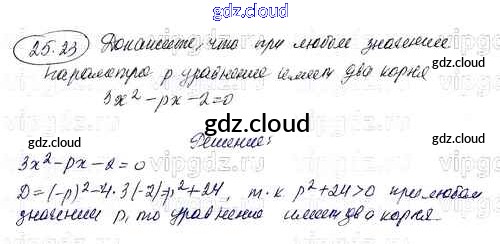 gdz.cloud
25.23 Докажите, что при любом значении
параметра p уравнение имеет два корня
3x²-px-2=0
gdz.cloud
gdz.cloud
gdz.cloud
Решение:
3x²-px-2=0
D=(-p)²-4·3(-2)=p²+24, т.к p²+24>0 при любом
значении p, то уравнение имеет два корня.
gdz.cloud
gdz.cloud